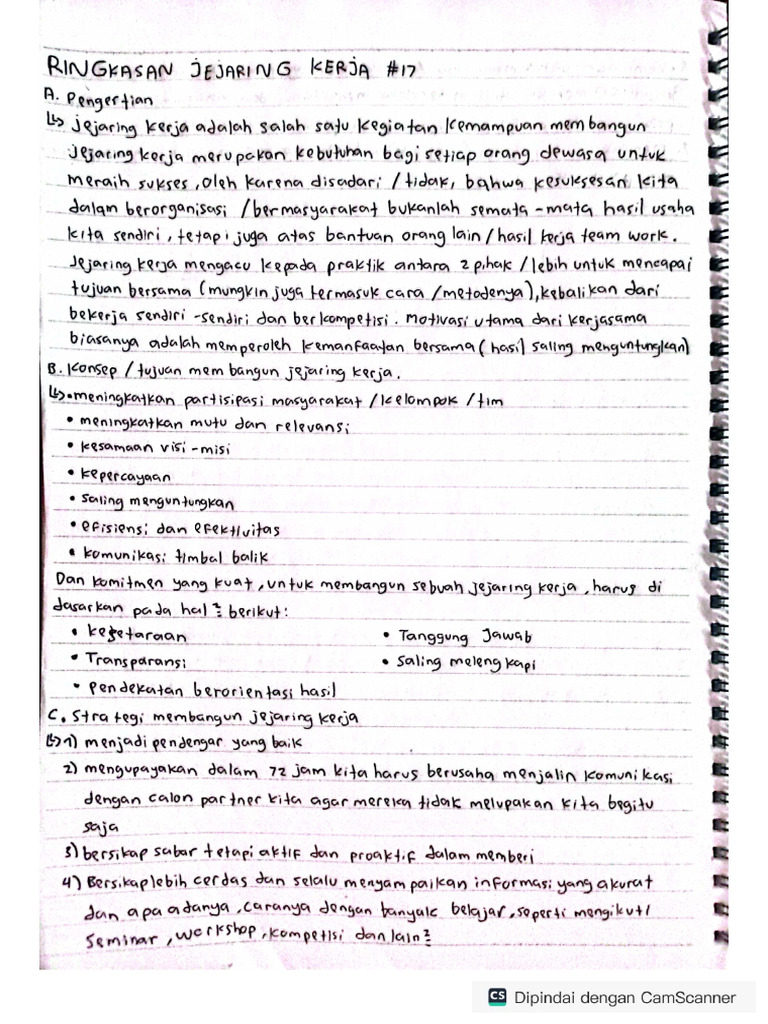 RINGKASAN JEJARING KERJA #17
A. Pengertian
↳ jejaring kerja adalah salah satu kegiatan kemampuan membangun
jejaring kerja merupakan kebutuhan bagi setiap orang dewasa untuk
meraih sukses, oleh karena disadari / tidak, bahwa kesuksesan kita
dalam berorganisasi / bermasyarakat bukanlah semata-mata hasil usaha
kita sendiri, tetapi juga atas bantuan orang lain / hasil kerja team work.
Jejaring kerja mengacu kepada praktik antara 2 pihak / lebih untuk mencapai
tujuan bersama (mungkin juga termasuk cara / metodenya), kebalikan dari
bekerja sendiri-sendiri dan berkompetisi. Motivasi utama dari kerjasama
biasanya adalah memperoleh kemanfaatan bersama (hasil saling menguntungkan)
B. Konsep / tujuan membangun jejaring kerja.
↳ • meningkatkan partisipasi masyarakat / kelompok / tim
• meningkatkan mutu dan relevansi
• kesamaan visi-misi
• kepercayaan
• saling menguntungkan
• efisiensi dan efektivitas
• komunikasi timbal balik
Dan komitmen yang kuat, untuk membangun sebuah jejaring kerja, harus di
dasarkan pada hal² berikut:
• kesetaraan • Tanggung Jawab
• Transparansi • saling melengkapi
• pendekatan berorientasi hasil
C. Strategi membangun jejaring kerja
↳ 1) menjadi pendengar yang baik
2) mengupayakan dalam 72 jam kita harus berusaha menjalin komunikasi
dengan calon partner kita agar mereka tidak melupakan kita begitu
saja
3) bersikap sabar tetapi aktif dan proaktif dalam memberi
4) Bersikap lebih cerdas dan selalu menyampaikan informasi yang akurat
dan apa adanya, caranya dengan banyak belajar, seperti mengikuti
seminar, workshop, kompetisi dan lain²
CS Dipindai dengan CamScanner